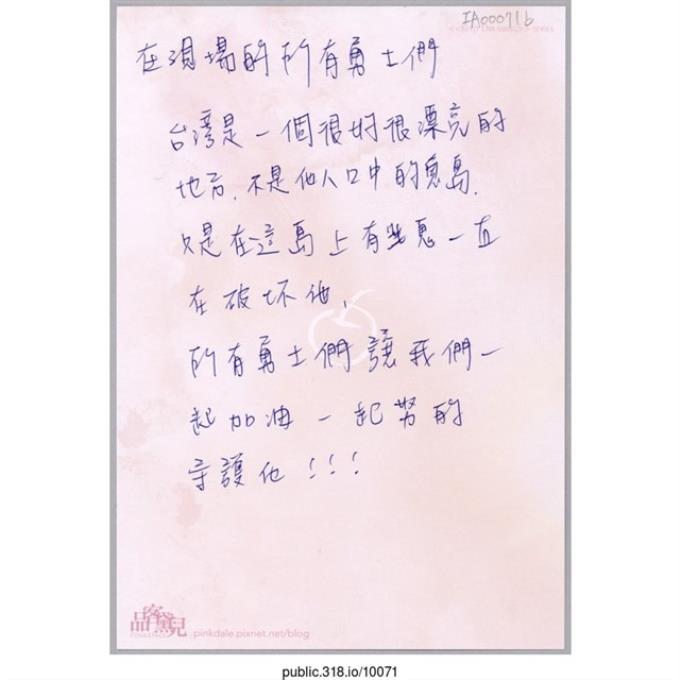 IA000716
在現場的所有勇士們
台灣是一個很好很漂亮的
地方,不是他人口中的鬼島.
只是在這島上有些鬼一直
在破坏他,
所有勇士們讓我們一
起加油一起努的
守護他!!!
品客黛兒
pinkdale.pixnet.net/blog
public.318.io/10071